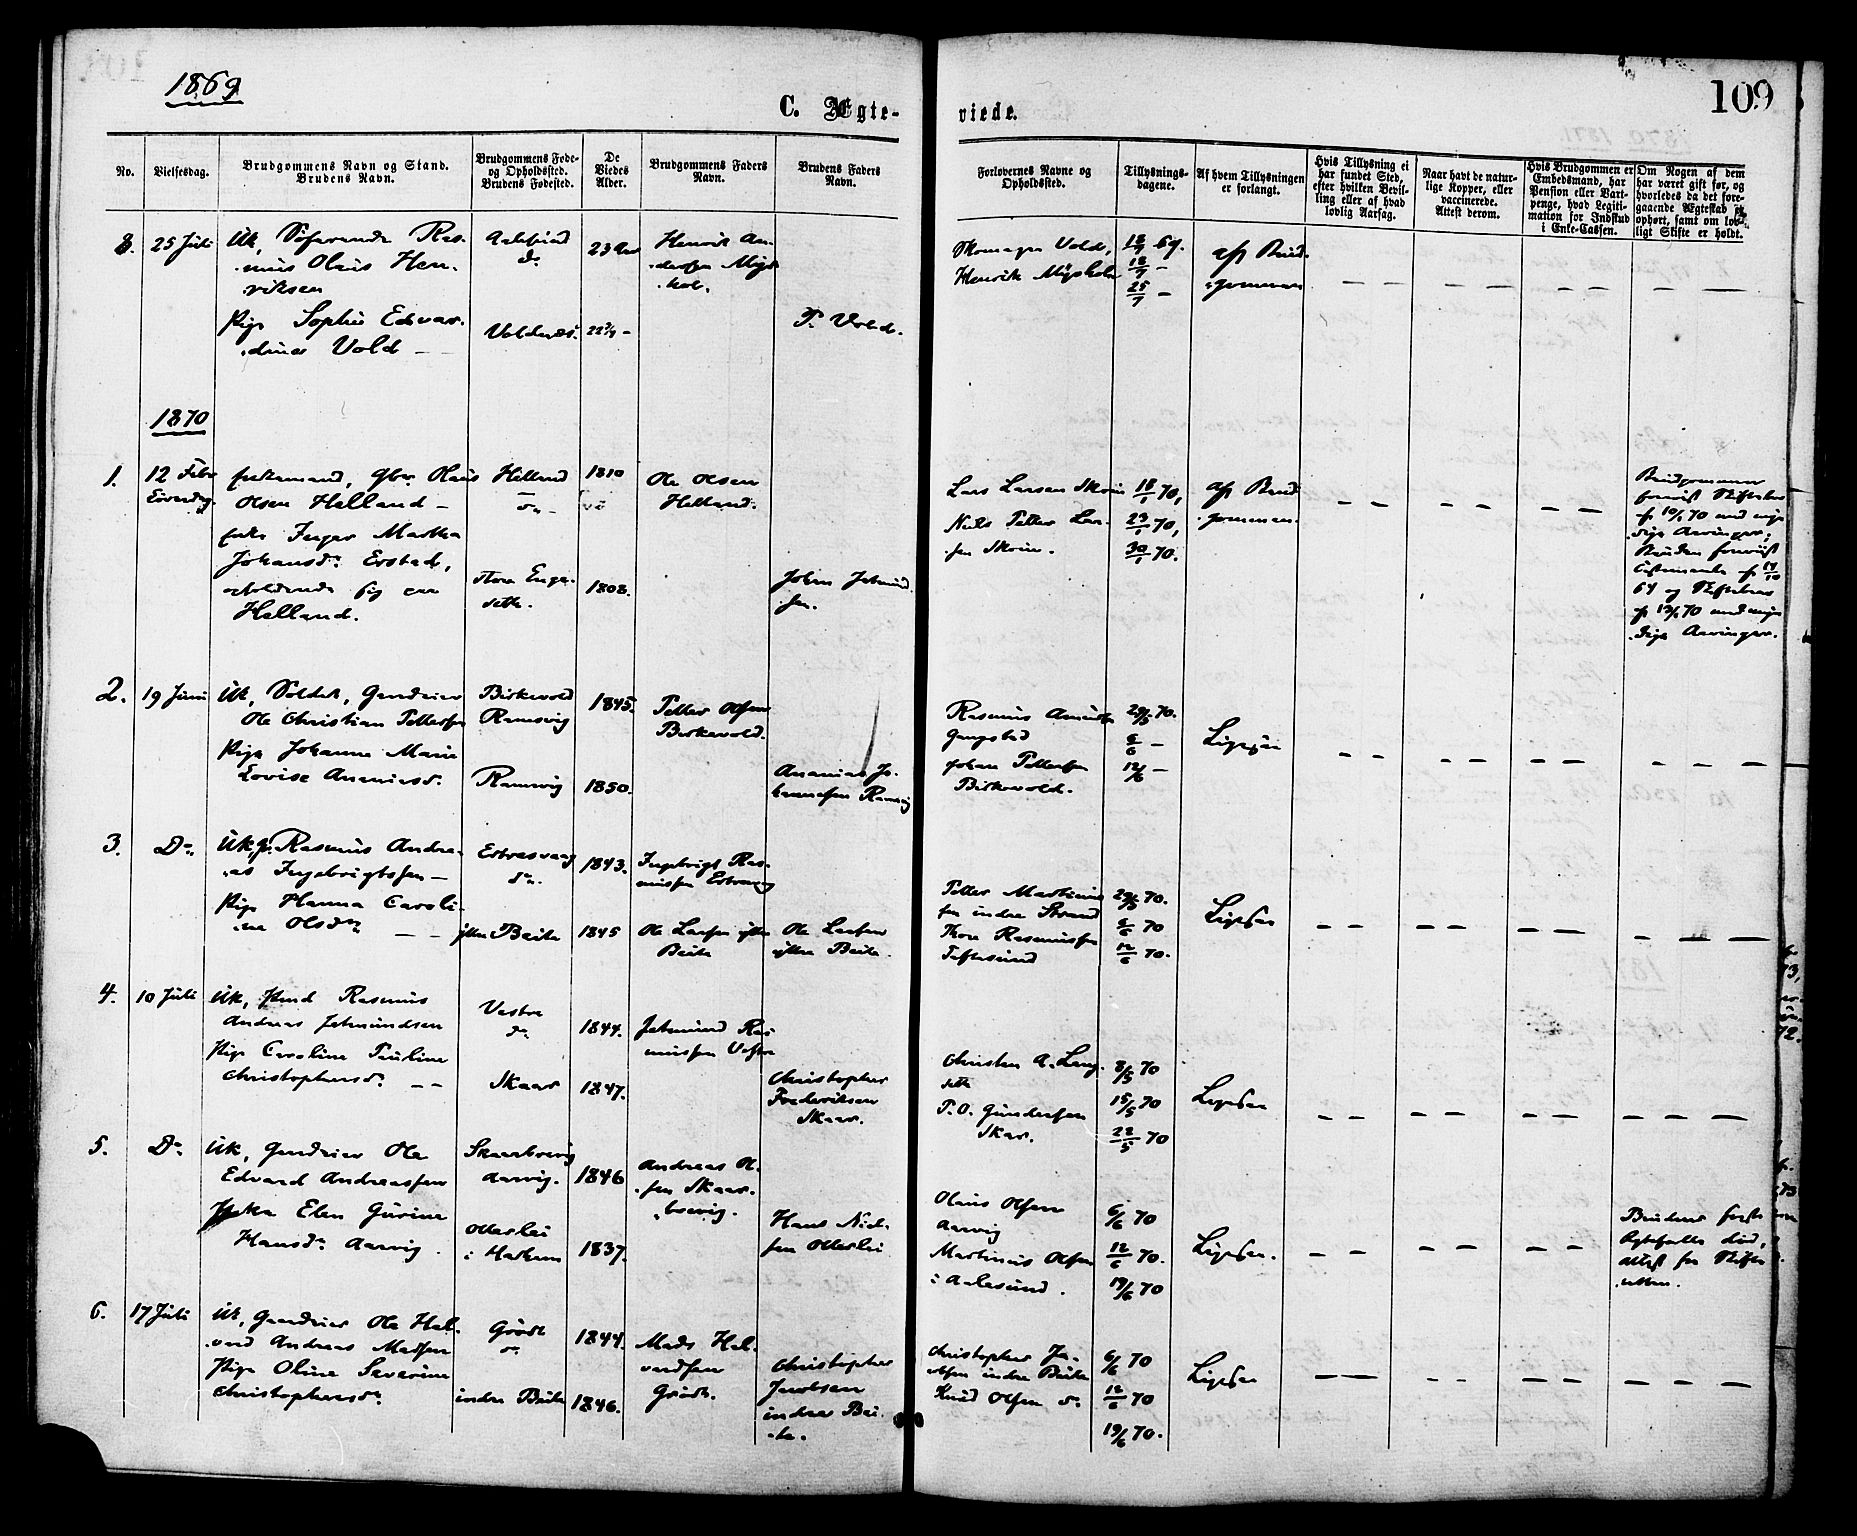 1869
109
C. Ægte-
viede.
No.
Vielsesdag.
Brudgommens Navn og Stand.
Brudens Navn.
Brudgommens Føde-
og Opholdssted.
Brudens Fødested.
De
Viedes
Alder.
Brudgommens Faders
Navn.
Brudens Faders
Navn.
Forlovernes Navne og
Opholdssted.
Tillysnings-
dagene.
Af hvem Tillysningen
er forlangt.
Hvis Tillysning ei
har fundet Sted,
efter hvilken Bevil-
ling eller af hvad
lovlig Aarsag.
Naar havt de natur-
lige Kopper, eller
vaccinerede.
Attest derom.
Hvis Brudgommen er
Embedsmand, har
Pension eller Vart-
penge, hvad Legiti-
mation for Indskud
i Enke-Cassen.
Om Nogen af dem
har været gift før, og
hvorledes da det fore-
gaaende Ægteskab er
ophørt, samt om lov-
ligt Skifte er holdt.
8.
25 Juli
Uk, Søfarende Ras-
mus Olaus Hen-
riksen
Pige Sophie Edvar-
dine Vold
Aalesund
do
Voldnæs.
23 Aar
Henrik An-
dersen Myk-
P. Vold.
Skomager Vold,
Henrik
18/7 69.
18/7 —
25/7 —
af Brud-
gommen
1870
1.
12 Febr
Løverdag.
Enkemand, Gbr. Olaus
Olsen Helland —
Enke Inger Martha
Johansdr Erstad,
opholdende sig paa
Helland.
Helland
do
store Enge-
sette.
1810
1808.
Ole Olsen
Helland.
Johan Jetmund-
sen.
Lars Larsen Skoue
Niels Petter Lar-
sen Skoue.
16/1 70,
23/1 70,
30/1 70.
af Brud-
gommen.
Brudgommen
foreviist Skiftebrev
af 10/1 70 med myn-
dige Arvinger;
Bruden foreviist
af 14/10
64 og Skiftebrev
af 13/1 70 med myn-
dige Arvinger.
2.
19 Juni
Uk, Soldat, Gaardeier
Ole Christian Pettersen
Pige Johanne Marie
Lovise Ananiasd.
Birkevold
Ramsvig
Ramsvig
1845.
1850.
Petter Olsen
Birkevold.
Ananias Jo-
hannessen Ramsvig
Rasmus Amundsen
Gangstad
Johan Pettersen
Birkevold.
29/5 70.
6/6 —
12/6 —
Ligesaa
3.
Do.
Uk, Rasmus Andre-
as Ingebrigtsen —
Pige Hanna Caroli-
ne Olsdr
Ertresvaag
do.
ytter Beite
1843.
1845
Ingebrigt Ras-
mussen Ertresvaag
Ole Larsen ytter
Beite
Ole Larsen
ytter Beite.
Petter Martinus-
sen indre Strand
Thore Rasmussen
Teftesund
29/5 70.
6/6 70
12/6 70.
Ligesaa
4.
10 Juli
Uk, Rasmus
Andreas Jetmundsen
Pige Caroline Pauline
Christophersd.
Vestre
do
Skaar
1844.
1847.
Jetmund Ras-
mussen Vestre
Christopher
Frederiksen
Skaar.
Christen A. Lang-
sette
P. O. Gundersen
Skar.
8/5 70
15/5 70
22/5 70
Ligesaa
5.
Do
Uk, Gaardeier Ole
Edvard Andreassen
Enke Elen Gurine
Hansdr Aarvig.
Skaarbrevig
Aarvig.
Otterlei
i Harhem
1846
1837.
Andreas Ol-
sen Skaar-
brevig.
Hans Niel-
sen Otterlei
Olaus Olsen
Aarvig
Martinus Olsen
i Aalesund.
6/6 70
12/6 70.
19/6 70
Ligesaa.
Brudens første
Ægtefælle død,
attest fra Skifte-
retten.
6.
17 Juli
Uk, Gaardeier Ole Hal-
vard Andreas Madsen
Pige Oline Severine
Christophersdr
Grødt
do
indre Beite
1844.
1846.
Mads Hal-
vardsen
Grødt.
Christopher
Jacobsen
indre Bei-
te.
Christopher Ja-
cobsen indre Beite
Knud Olsen do.
6/6 70
12/6 70
19/6 70.
Ligesaa